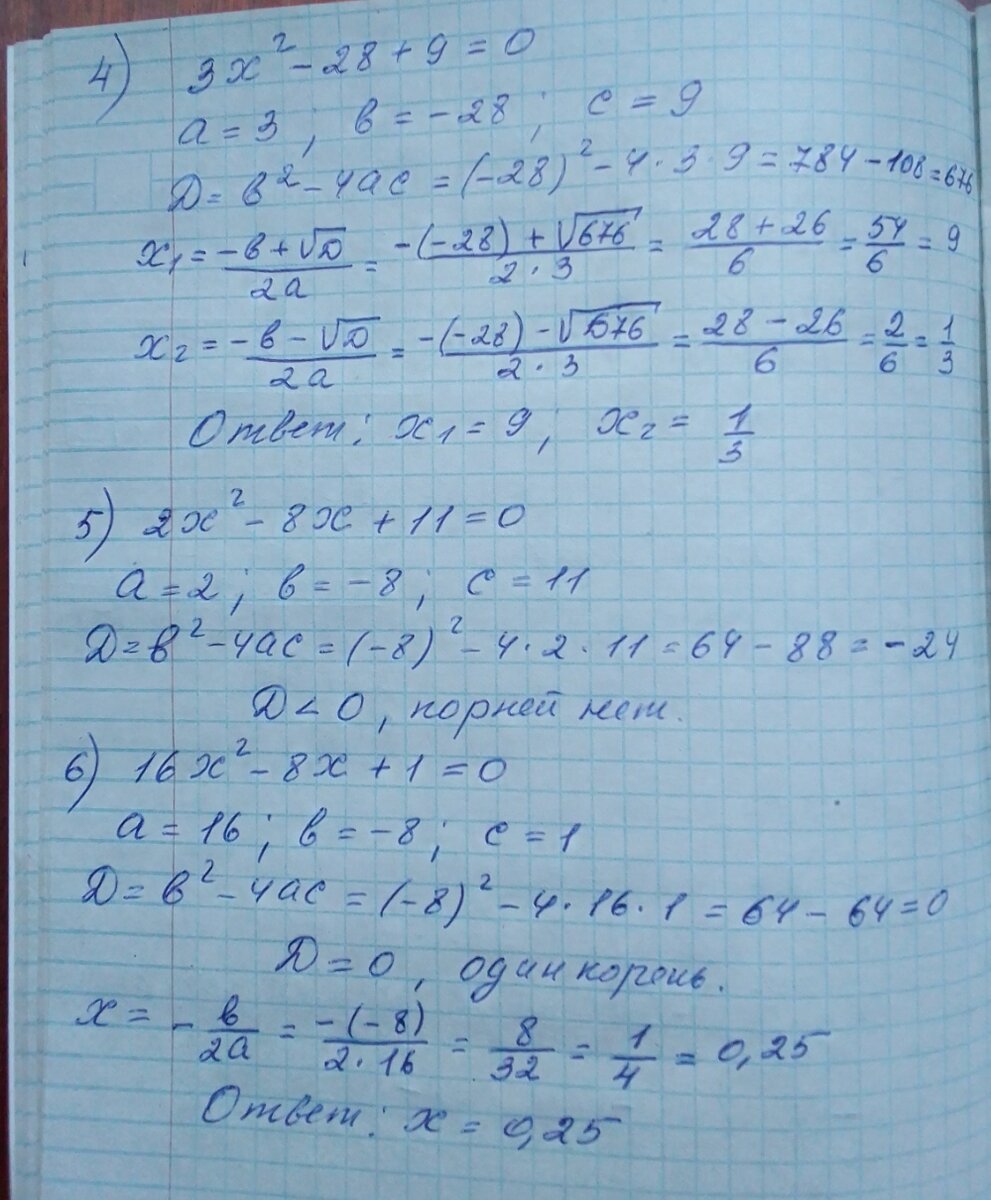 4) 3x² - 28 + 9 = 0
a = 3 ; в = -28 ; c = 9
Д = в² - 4ac = (-28)² - 4 · 3 · 9 = 784 - 108 = 676
x₁ = (-в + √D)/(2a) = (-(-28) + √676)/(2 · 3) = (28 + 26)/6 = 54/6 = 9
x₂ = (-в - √D)/(2a) = (-(-28) - √676)/(2 · 3) = (28 - 26)/6 = 2/6 = 1/3
Ответ: x₁ = 9 ; x₂ = 1/3
5) 2x² - 8x + 11 = 0
a = 2 ; в = -8 ; c = 11
Д = в² - 4ac = (-8)² - 4 · 2 · 11 = 64 - 88 = -24
Д < 0 , корней нет.
6) 16x² - 8x + 1 = 0
a = 16 ; в = -8 ; c = 1
Д = в² - 4ac = (-8)² - 4 · 16 · 1 = 64 - 64 = 0
Д = 0 , один корень.
x = - в/(2a) = (-(-8))/(2 · 16) = 8/32 = 1/4 = 0,25
Ответ: x = 0,25